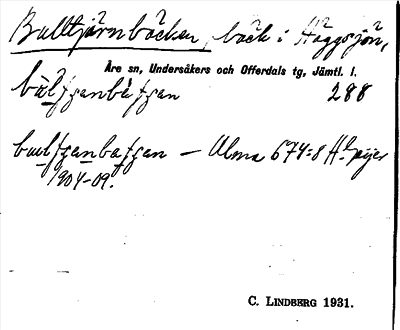 Balltjärnbäcken, bäck i Häggsjön,
Åre sn, Undersåkers och Offerdals tg, Jämtl. l.
288
— Ulma 674:8 H. Geijer
1904-09.
C. LINDBERG 1931.